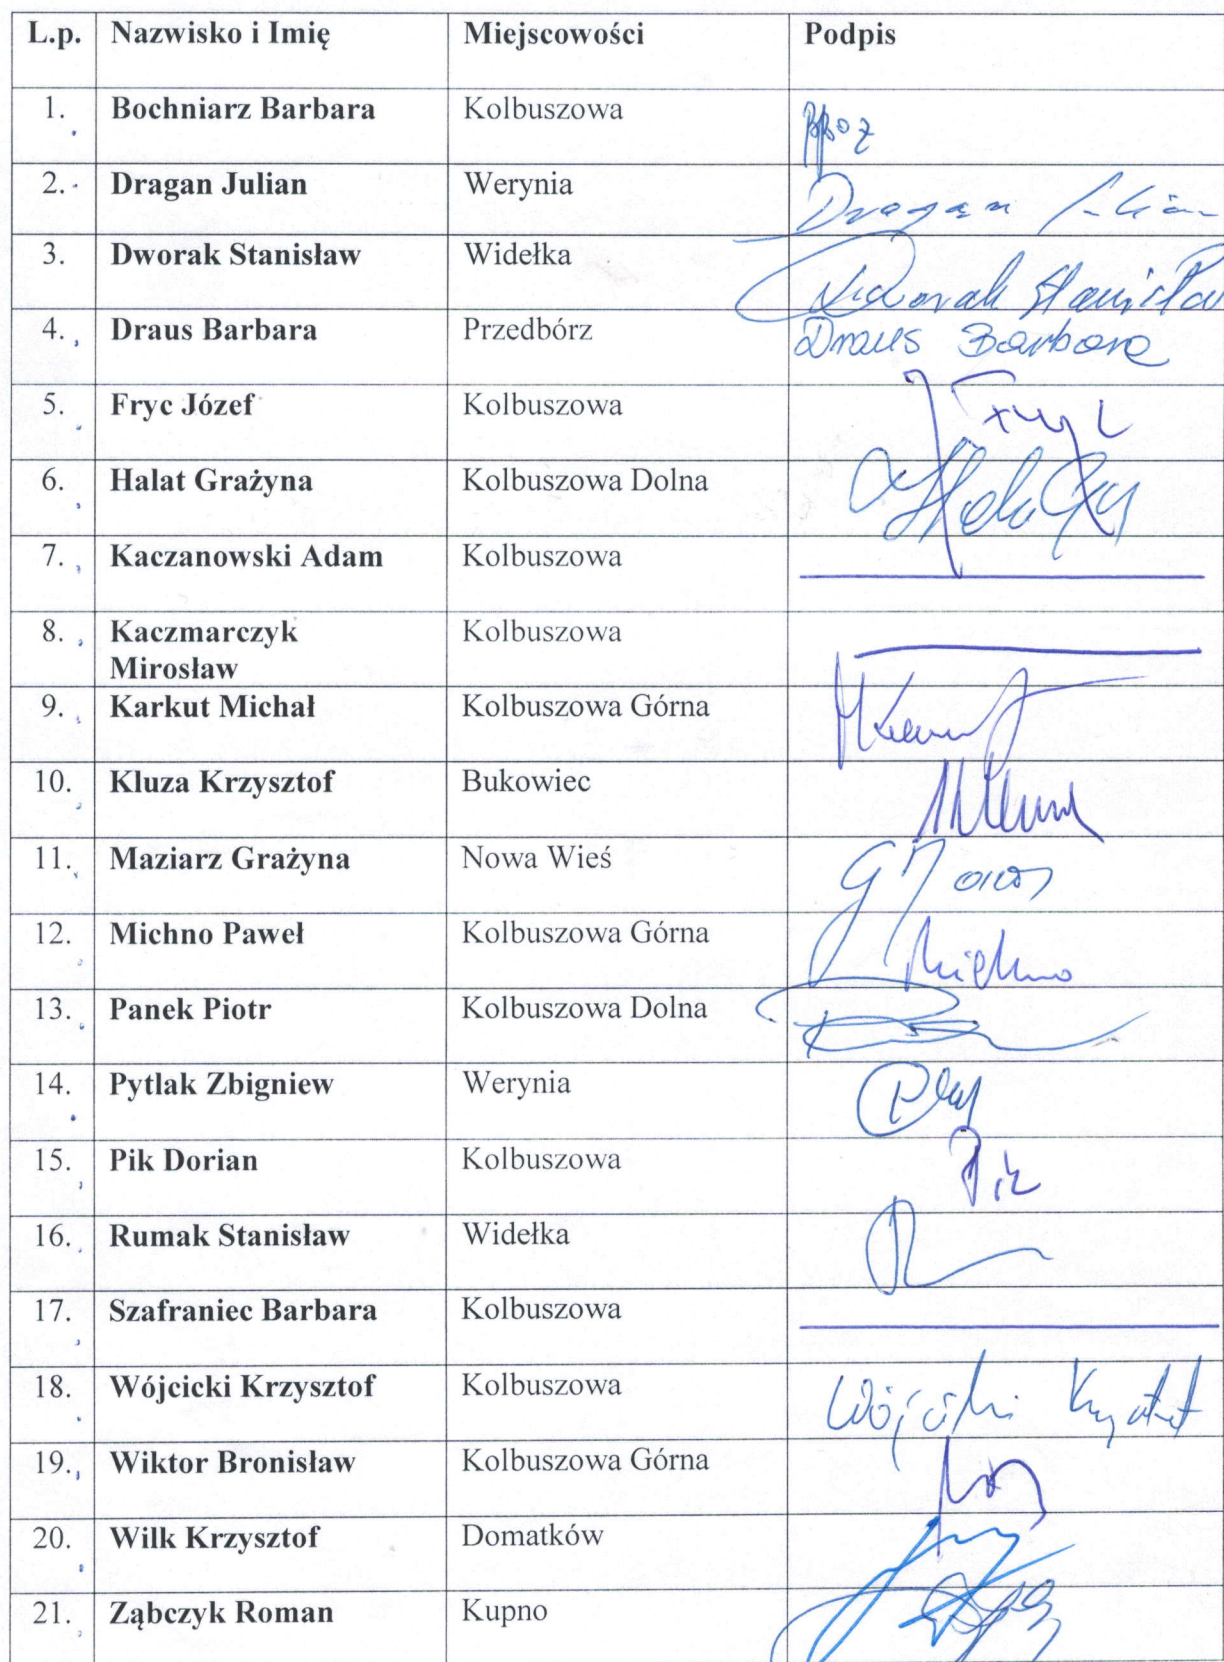 L.p. Nazwisko i Imię Miejscowości Podpis
1. Bochniarz Barbara Kolbuszowa
2. Dragan Julian Werynia Dragan
3. Dworak Stanisław Widełka Dworak Stanisław
4. Draus Barbara Przedbórz Draus Barbara
5. Fryc Józef Kolbuszowa
6. Halat Grażyna Kolbuszowa Dolna
7. Kaczanowski Adam Kolbuszowa
8. Kaczmarczyk Kolbuszowa
Mirosław
9. Karkut Michał Kolbuszowa Górna
10. Kluza Krzysztof Bukowiec
11. Maziarz Grażyna Nowa Wieś
12. Michno Paweł Kolbuszowa Górna Michno
13. Panek Piotr Kolbuszowa Dolna
14. Pytlak Zbigniew Werynia
15. Pik Dorian Kolbuszowa Pik
16. Rumak Stanisław Widełka
17. Szafraniec Barbara Kolbuszowa
18. Wójcicki Krzysztof Kolbuszowa Wójcicki
19. Wiktor Bronisław Kolbuszowa Górna
20. Wilk Krzysztof Domatków
21. Ząbczyk Roman Kupno